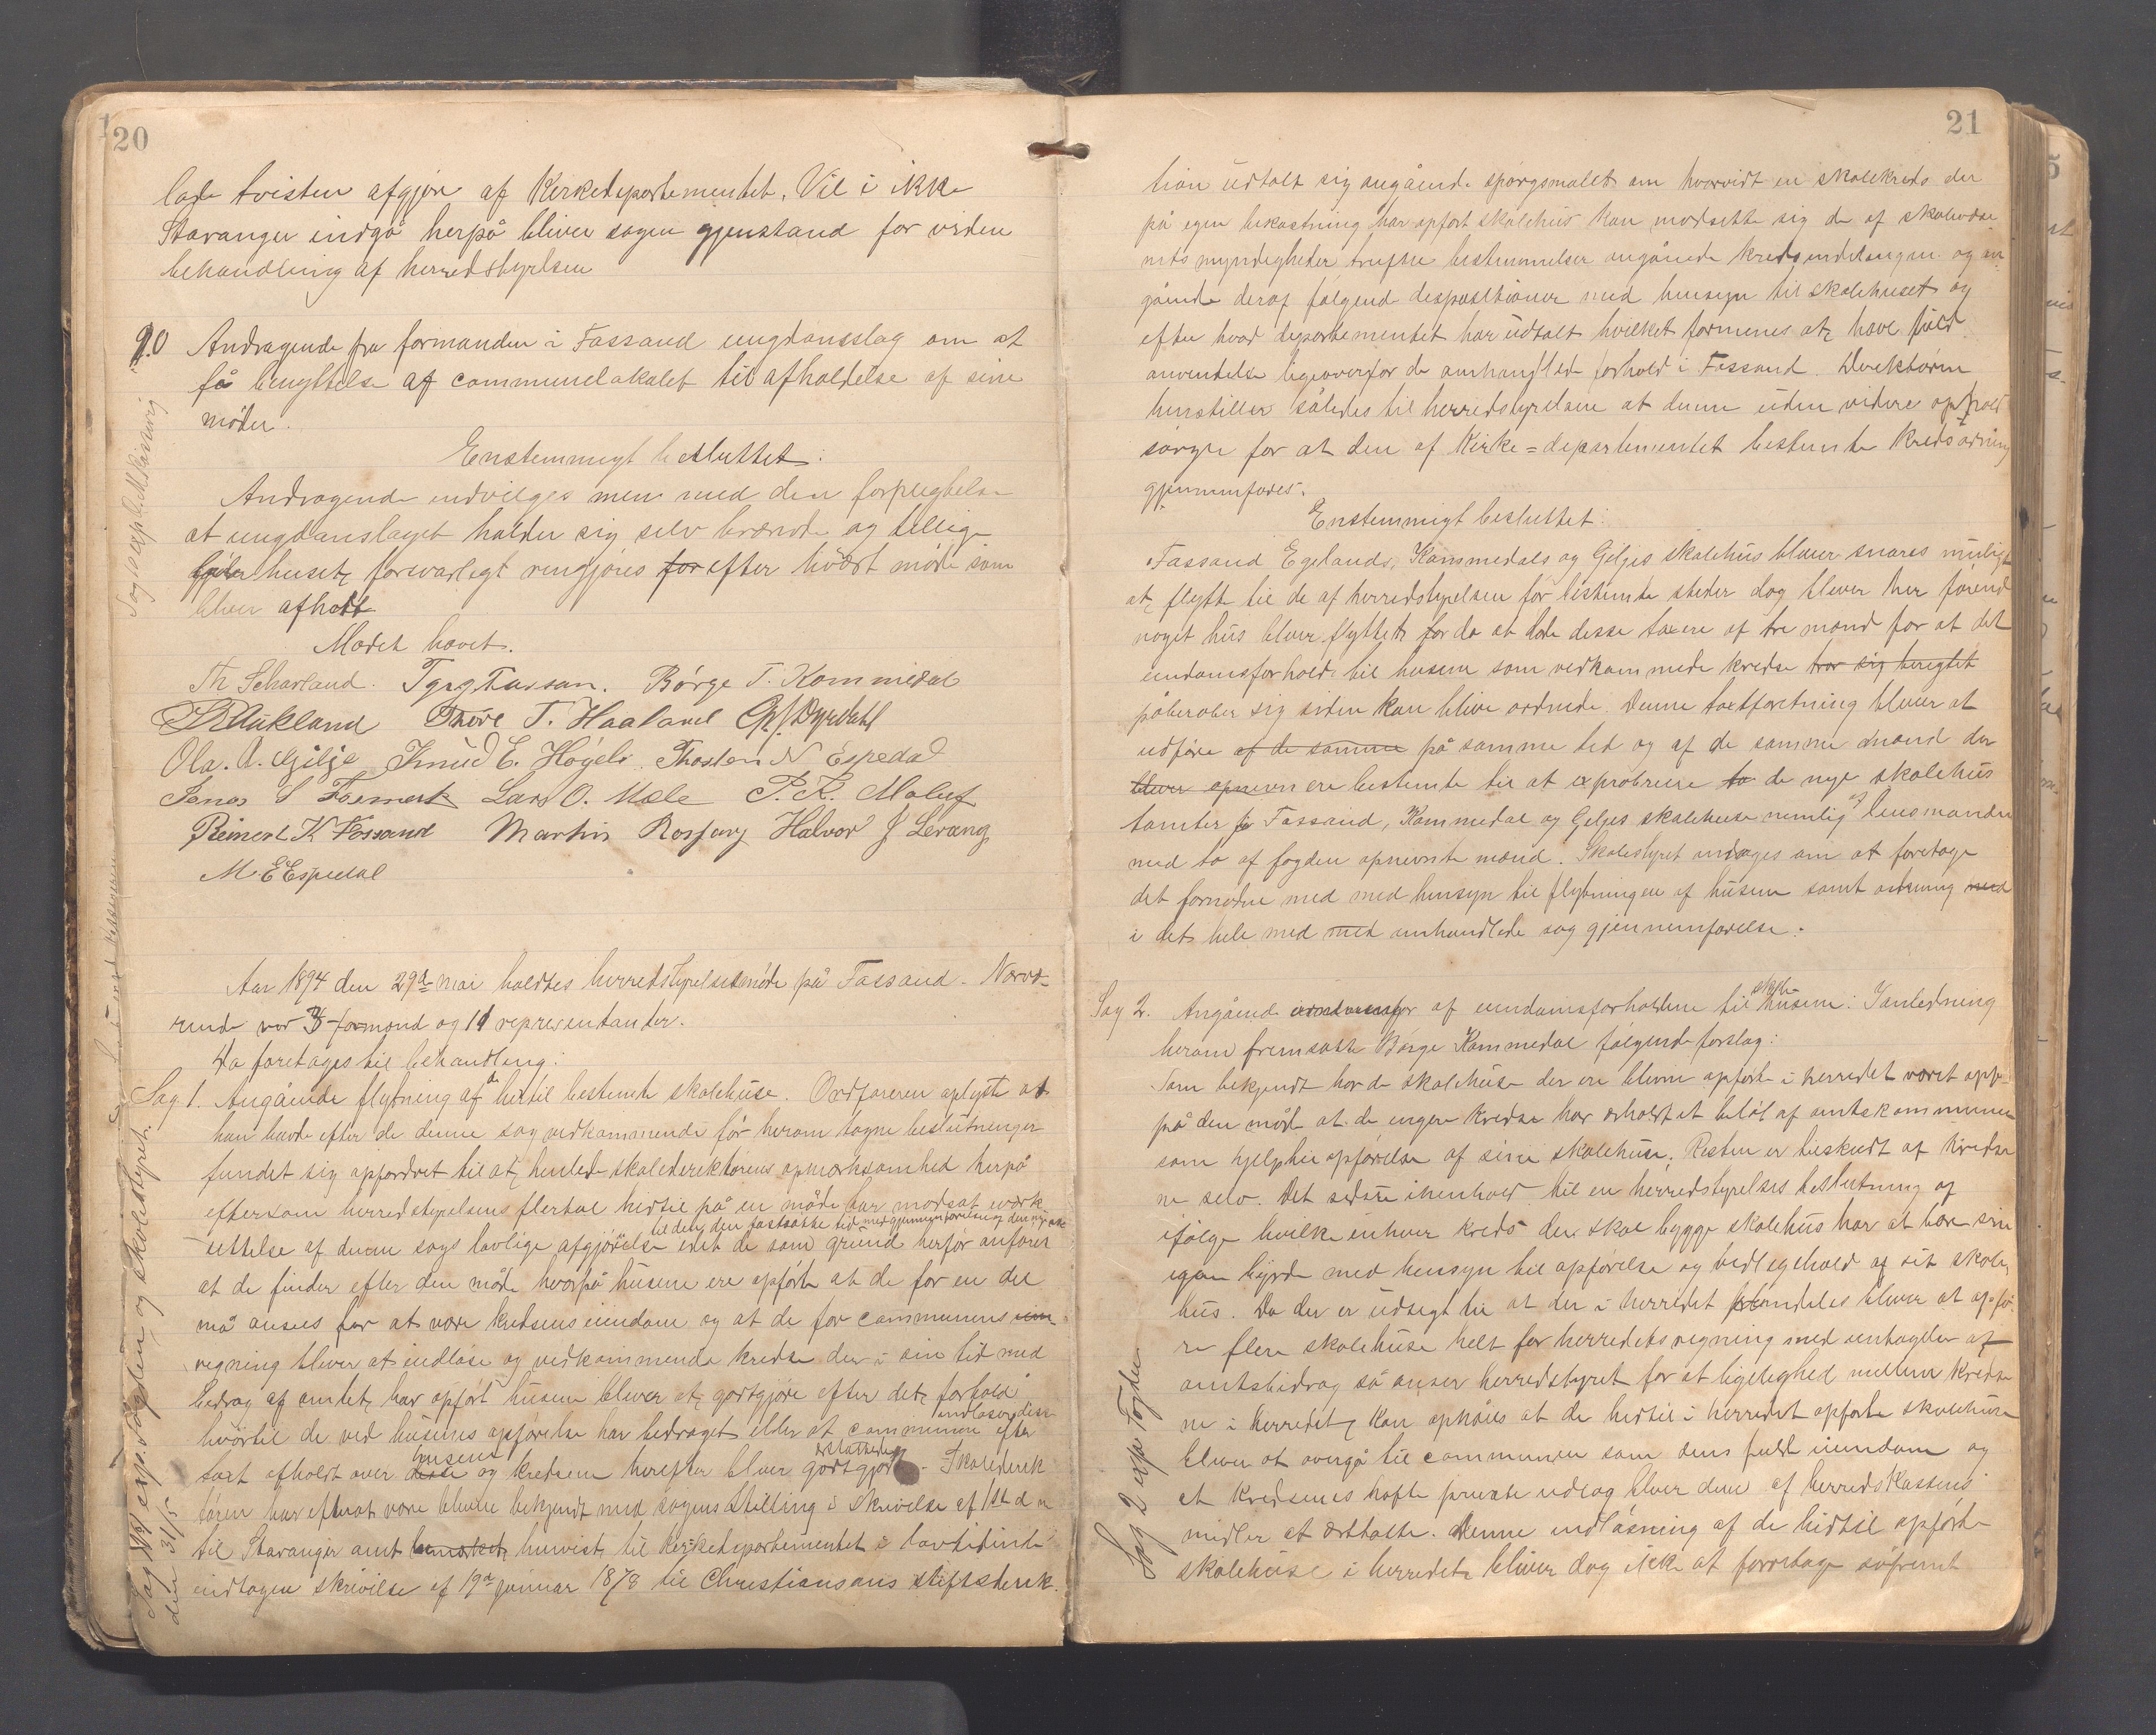 20
lade tvisten afgjøre af Kirkedepartementet. Vil i ikke
Stavanger indgå herpå bliver sagen gjenstand for viden
behandling af herredstyrelsen
Andragende fra formanden i Fassand ungdansslag om at
få benyttelse af communelokalet til afholdelse af sine
møder.
Enstemmigt besluttet:
Andragende indvilges men med den forpligtelse
at ungdanslaget holder sig selv brænde og tillige
huset forsvarligt rengjøres for efter hvært møde som
bliver afholt
Mødet hævet.
Th Scharland. Børge T. Kommedal
Aukland Tore T. Haaland
Ola. A. Gilje Knud E. Høgeli Thosten N Espedal
Jonas S Lars O. Mæle P. R. Maluf
Reinert K Fossand Martin Rosjarg Halvor J Levæng
M. E Espedal
Aar 1894 den 29de mai holdtes herredstyrelsesmøde på Fassand. Nærvæ-
rende var formænd og 11 representanter.
Da foretoges til behandling:
Sag 1. Angående flytning af de hertil bestemte skolehuse. Ordføreren oplyste at
han havde efter de denne sag vedkommende før herom tagne beslutninger
fundet sig opfordret til at henlede skoledirektørens opmærksomhed herpå
eftersom herredstyrelsens flertal hertil på en måde har modsat iværk-
settelse af denne sags lovlige afgjørelse idet de som grund herfor anfører
at de finder efter den måde hvorpå husene ere opførte at de for en del
må anses for at være kredsens eiendom og at de for communens
regning bliver at indløse og vedkommende kredse der i sin tid med
bedrag af amtet har opført husene bliver at godtgjøre efter det forhold
hvortil de ved husenes opførelse har bedraget eller at communen efter
taxt afholdt over disse husene og kredsene herefter bliver godtgjort. Skoledirek
tøren har efter at være bleven bekjendt med sagens stilling i skrivelse af 1st d m
til Stavanger amt henvist til Kirkedepartementet i lovtidende
indtagen skrivelse af 19de januar 1878 til Christiansans stiftsdirek.
Sag exp. Fogden og skolestyret.
den 31/5
21
tion udtalt sig angående spørgsmålet om hvorvidt en skolekreds der
på egen bekostning har opført skolehus kan modsette sig de af skolevæse
nets myndigheder trufne bestemmelser angående kredsindelingen og an
gående deraf følgende despositioner med hensyn til skolehuset og
efter hvad departementet har udtalt hvilket formenes at have fuld
anvendelse ligeoverfor de omhandlede forhold i Fossand. Direktøren
henstiller således til herredstyrelsen at denne uden videre ophold
sørger for at den af Kirke=departementet bestemte kredsordning
gjennemføres.
Enstemmigt besluttet:
Fassand Egelands, Kommedals og Giljes skolehus bliver snares muligt
at flytte til de af herredstyrelsen før bestemte steder dog bliver her førend
noget hus bliver flyttet for da at lade desse taxere af tre mænd for at det
eiendomsforhold til husene som vedkommende kredse tror sig beregtet
påberober sig siden kan blive ordnede. Denne taxtforetning bliver at
udføre af de samme på samme tid og af de samme mænd der
bliver opnevn ere bestemte til at exprobriere to de nye skolehus
tomter Fassand, Kommedal og Giljes skolehuse nemlig af lensmanden
med to af fogden opnevnte mænd. Skolestyret anmodes om at foretage
det fornødne med med hensyn til flytningen af husene samt ordning med
i det hele med med omhandlede sag gjennemførelse.
Sag 2. Angående af eiendomsforholdene til skolehusene. I anledning
herom fremsatte Børge Kommedal følgende forslag:
Som bekjendt har de skolehuse der ere blevne opførte i herredet været opp-
på den måde at de engere kredse har erholdt et beløb af amtskommunen
som hjelp til opførelse af sine skolehuse. Resten er tilskudt af kredse
ne selv. Det sidste i henhold til en herredstyrelses beslutning og
ifølge hvilke enhver kreds der skal bygge skolehus har at bære sin
egen byrde med hensyn til opførelse og vedlegehold af sit skole-
hus. Da der er udsigt til at der i herredet fremdeles bliver at opfø-
re flere skolehuse helt for herredets regning med entagelse af
amtsbidrag så anser herredstyret for at ligelighed mellem kredse
ne i herredet kan opnåes at de hidtil i herredet opførte skolehuse
bliver at overgå til communen som dens fulde eiendom og
at kredsenes hafte private udlæg bliver dem af herredskassens
midler at erstatte. Denne indløsning af de hidtil opførte
skolehuse i herredet bliver dog ikke at foretage såfremt
Sag 2 exp. Fogden